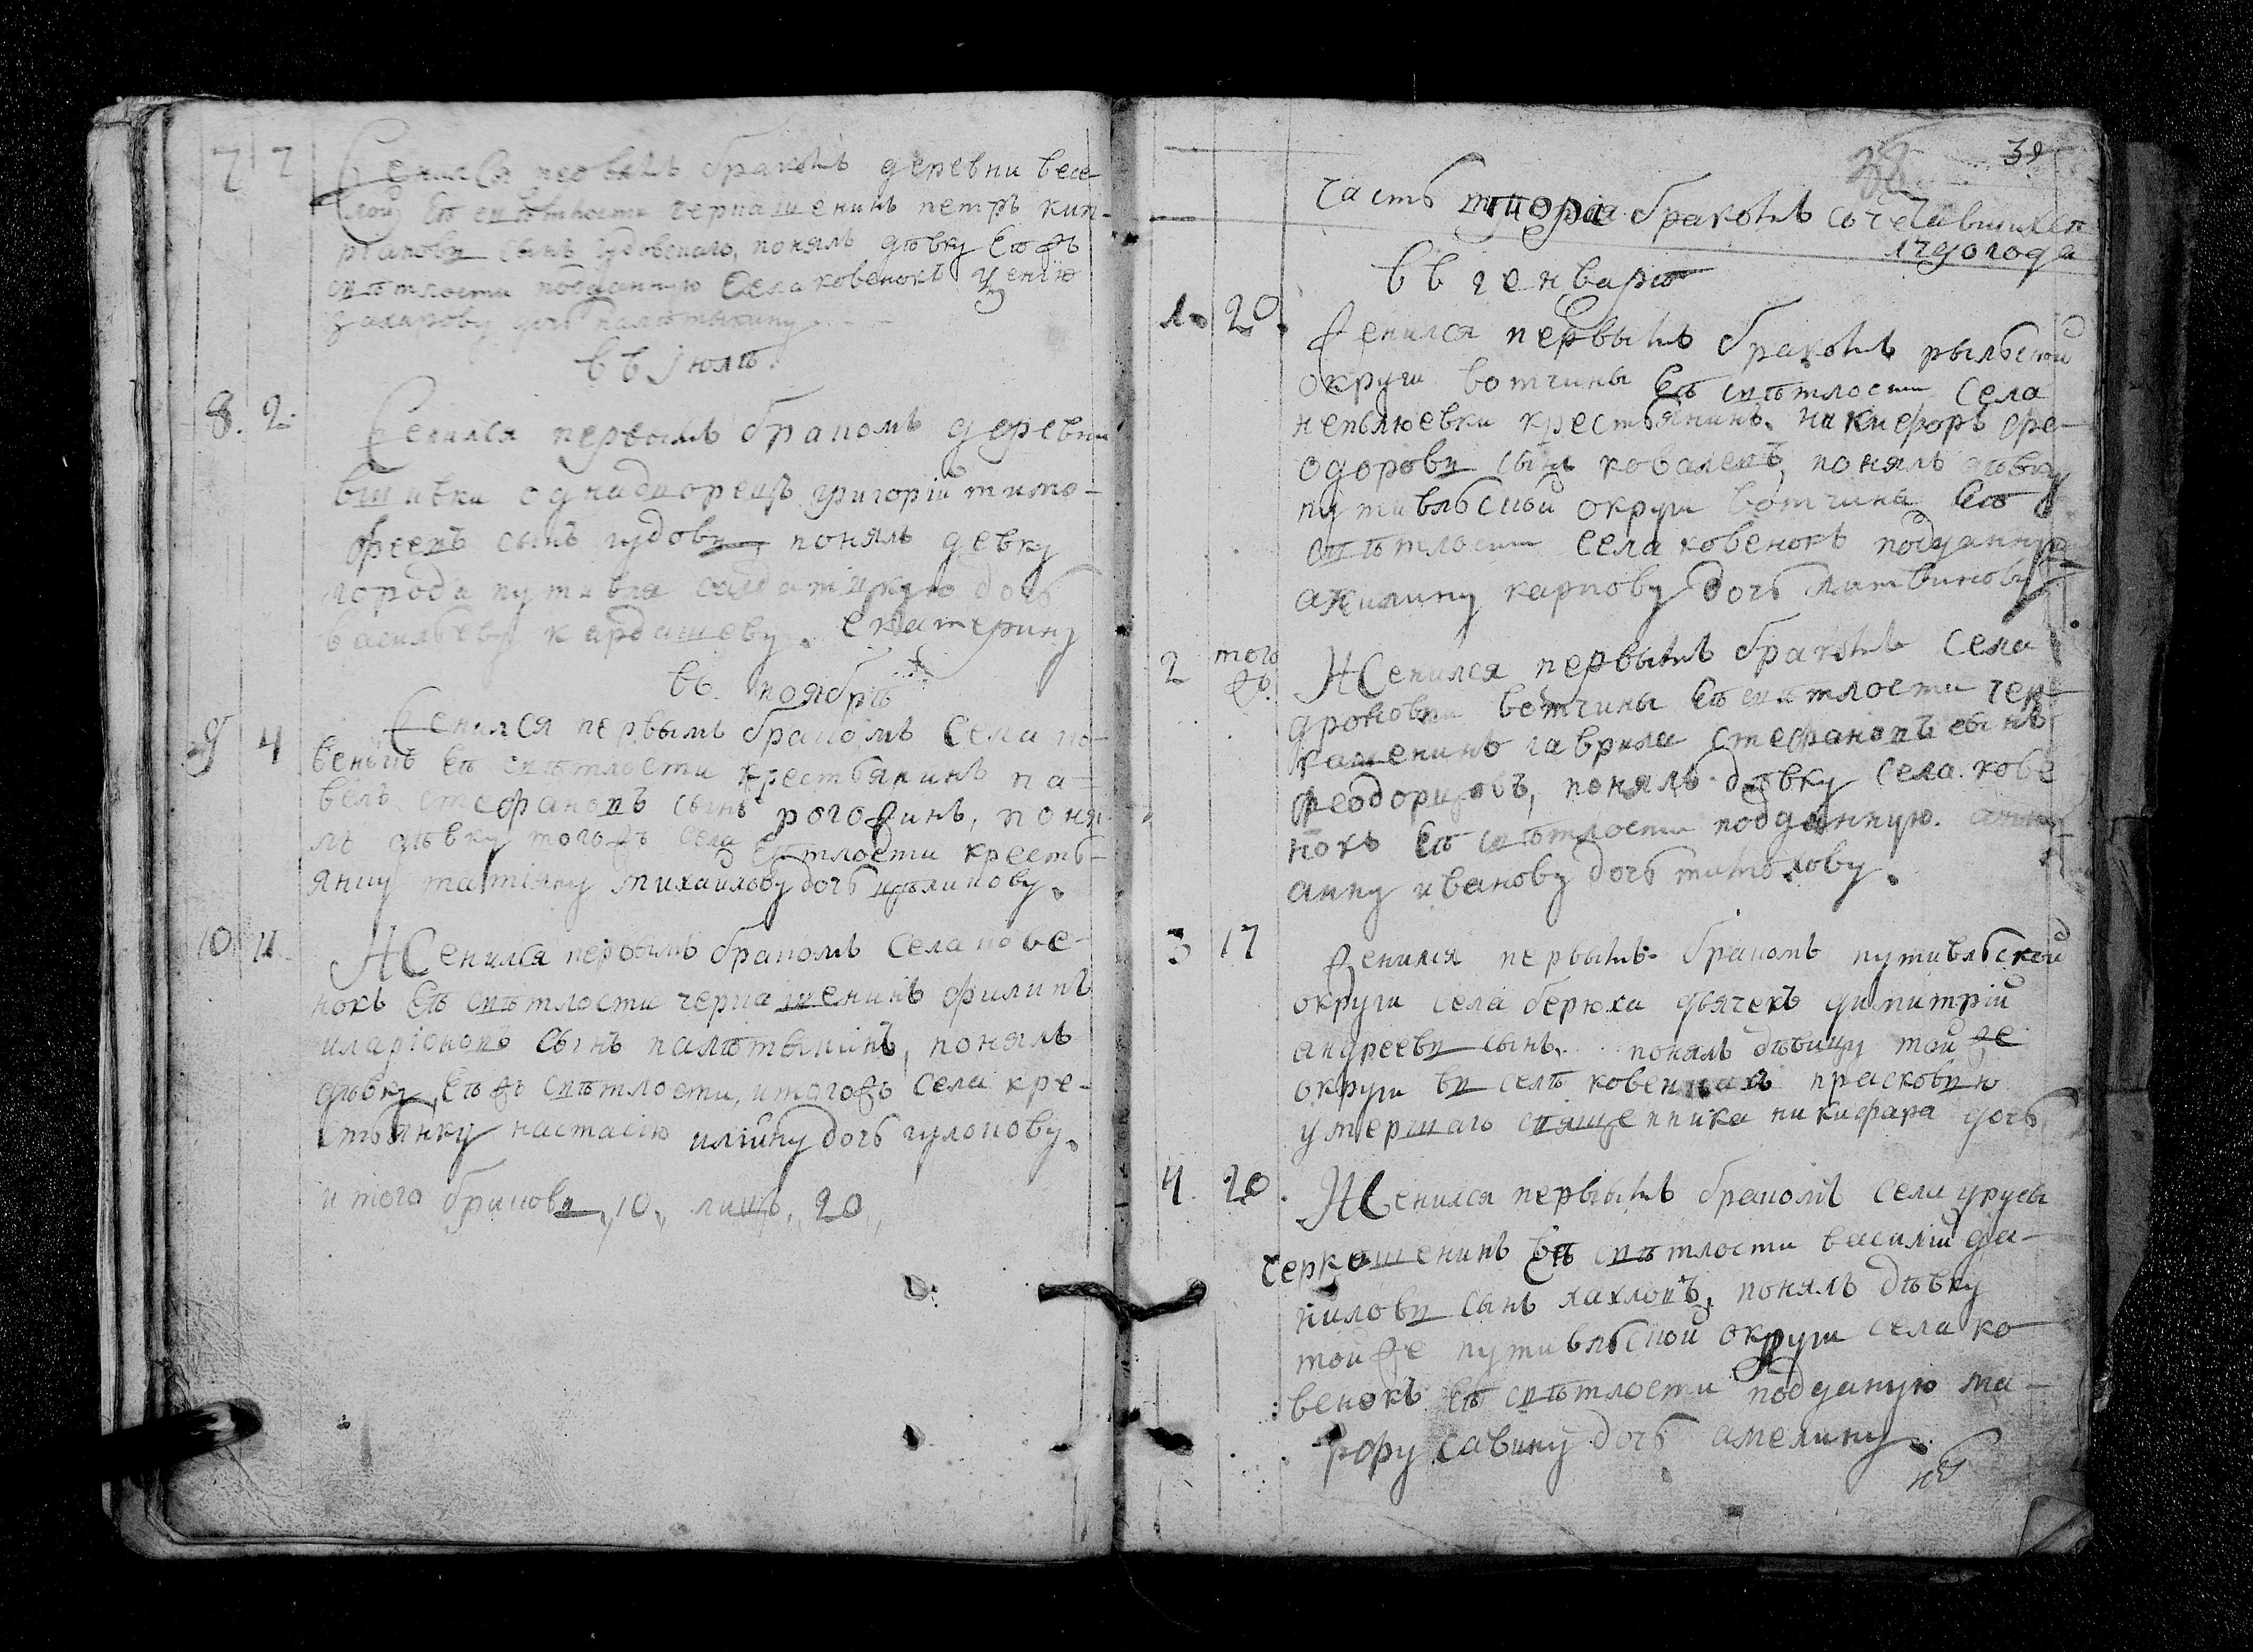 7 7 Женился первымъ бракомъ деревни весе-
лой Еѣ свѣтлости черкашенинъ петръ кип-
рiановъ сынъ чудовскаго, понялъ дѣвку Еѣжъ
свѣтлости подданную села ковенокъ
захарову дочь паметыкину
въ Iюлѣ.
8. 2. Женился первымъ бракомъ деревни
вшивки однадворецъ григорiй тимо-
феевъ сынъ чудовъ, понялъ девку
города путивля салдатцкую дочь
васильеву кардашеву. екатерину
въ ноябрѣ
9 4 Женился первымъ бракомъ села ко-
венокъ Еѣ свѣтлости крестьянинъ па-
велъ стефановъ сынъ рогожинъ, поня-
лъ дѣвку тогожъ села свѣтлости кресть-
янку татiяну михайлову дочь
10 11. Женился первымъ бракомъ села кове-
нокъ Еѣ свѣтлости черкашенинъ филипъ
иларiоновъ сынъ паметыкинъ, понялъ
дѣвку, Еѣжъ свѣтлости, итогожъ села кре-
стьянку настасiю илiину дочь гулонову.
итого браковъ, 10, лицъ, 20,
38 39
часть вторая бракомъ сочетавшихся
1790 года
въ генварѣ
1. 20. Женился первымъ бракомъ рыльской
округи вотчины Еѣ свѣтлости села
неплюевки крестьянинъ никифоръ фе-
одоровъ сынъ коваленъ, понялъ дѣвку
путивльской округи вотчины Еѣ
свѣтлости села ковенокъ подданную
акилину карпову дочь литвинову
2 того жъ. Женился первымъ бракомъ села
вотчины Еѣ свѣтлости чер-
кашенинъ гаврила стефановъ сынъ
понялъ дѣвку села кове
нокъ Еѣ свѣтлости подданную.
анну иванову дочь
3 17 Женился первымъ бракомъ путивльской
округи села берюха дьячекъ димитрiй
андреевъ сынъ. понялъ дѣвицу тойже
округи въ селѣ ковенкахъ прасковию
умершаго священника никифара дочь
4. 20. Женился первымъ бракомъ села урусы
черкашенинъ Еѣ свѣтлости василiй да-
ниловъ сынъ лахловъ, понялъ дѣвку
тойже путивльской округи села ко-
венокъ Еѣ свѣтлости подданую ма-
рфу савину дочь амелину.